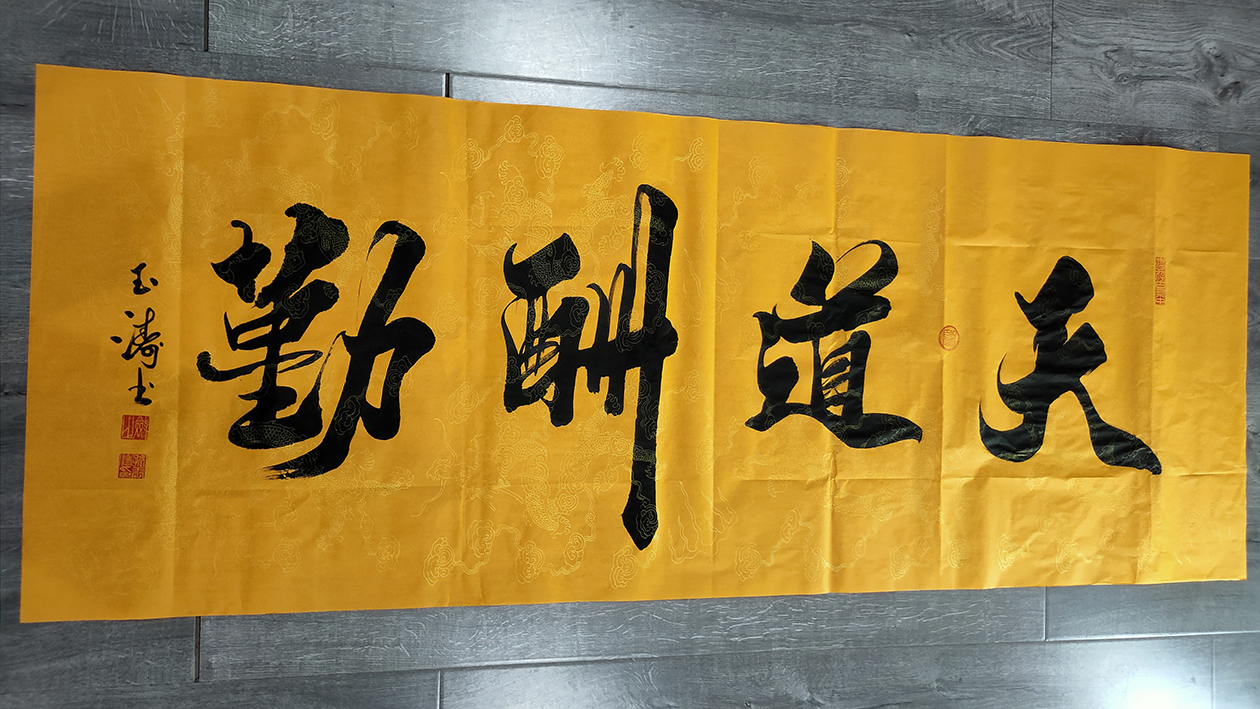 天道酬勤
玉涛书